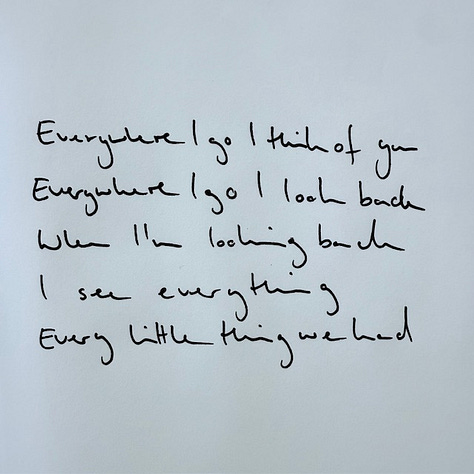 Everywhere I go I think of you
Everywhere I go I look back
When I'm looking back
I see everything
Every little thing we had